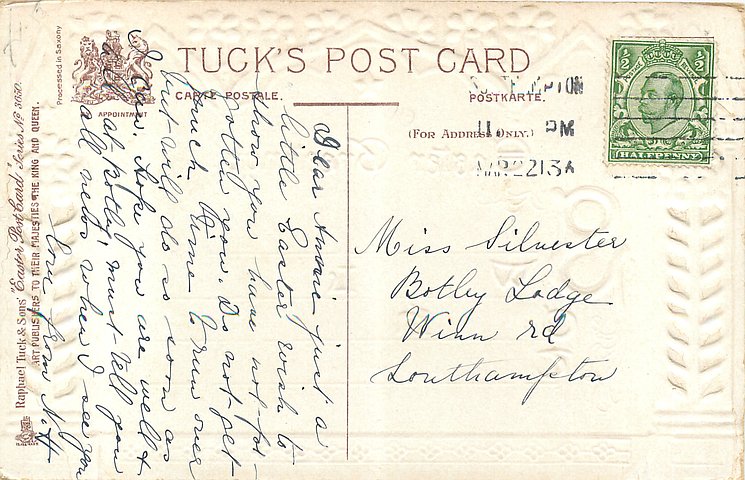 TUCK'S POST CARD
CARTE POSTALE.
POSTKARTE.
(FOR ADDRESS ONLY.)
APPOINTMENT
Processed in Saxony
Raphael Tuck & Sons' "Easter" Post Card Series Nº 3650.
ART PUBLISHERS TO THEIR MAJESTIES THE KING AND QUEEN.
½ ½
HALFPENNY
PM
MAR 22 13
Dear Annie just a
little Easter wish to
show you have not for-
gotten you. Do not get
much time to run over
but will do so soon as
I can. Hope you are well &
all at Botley must tell you
all news when I see you
Love from N.H
Miss Silvester
Botley Lodge
Winn rd
Southampton